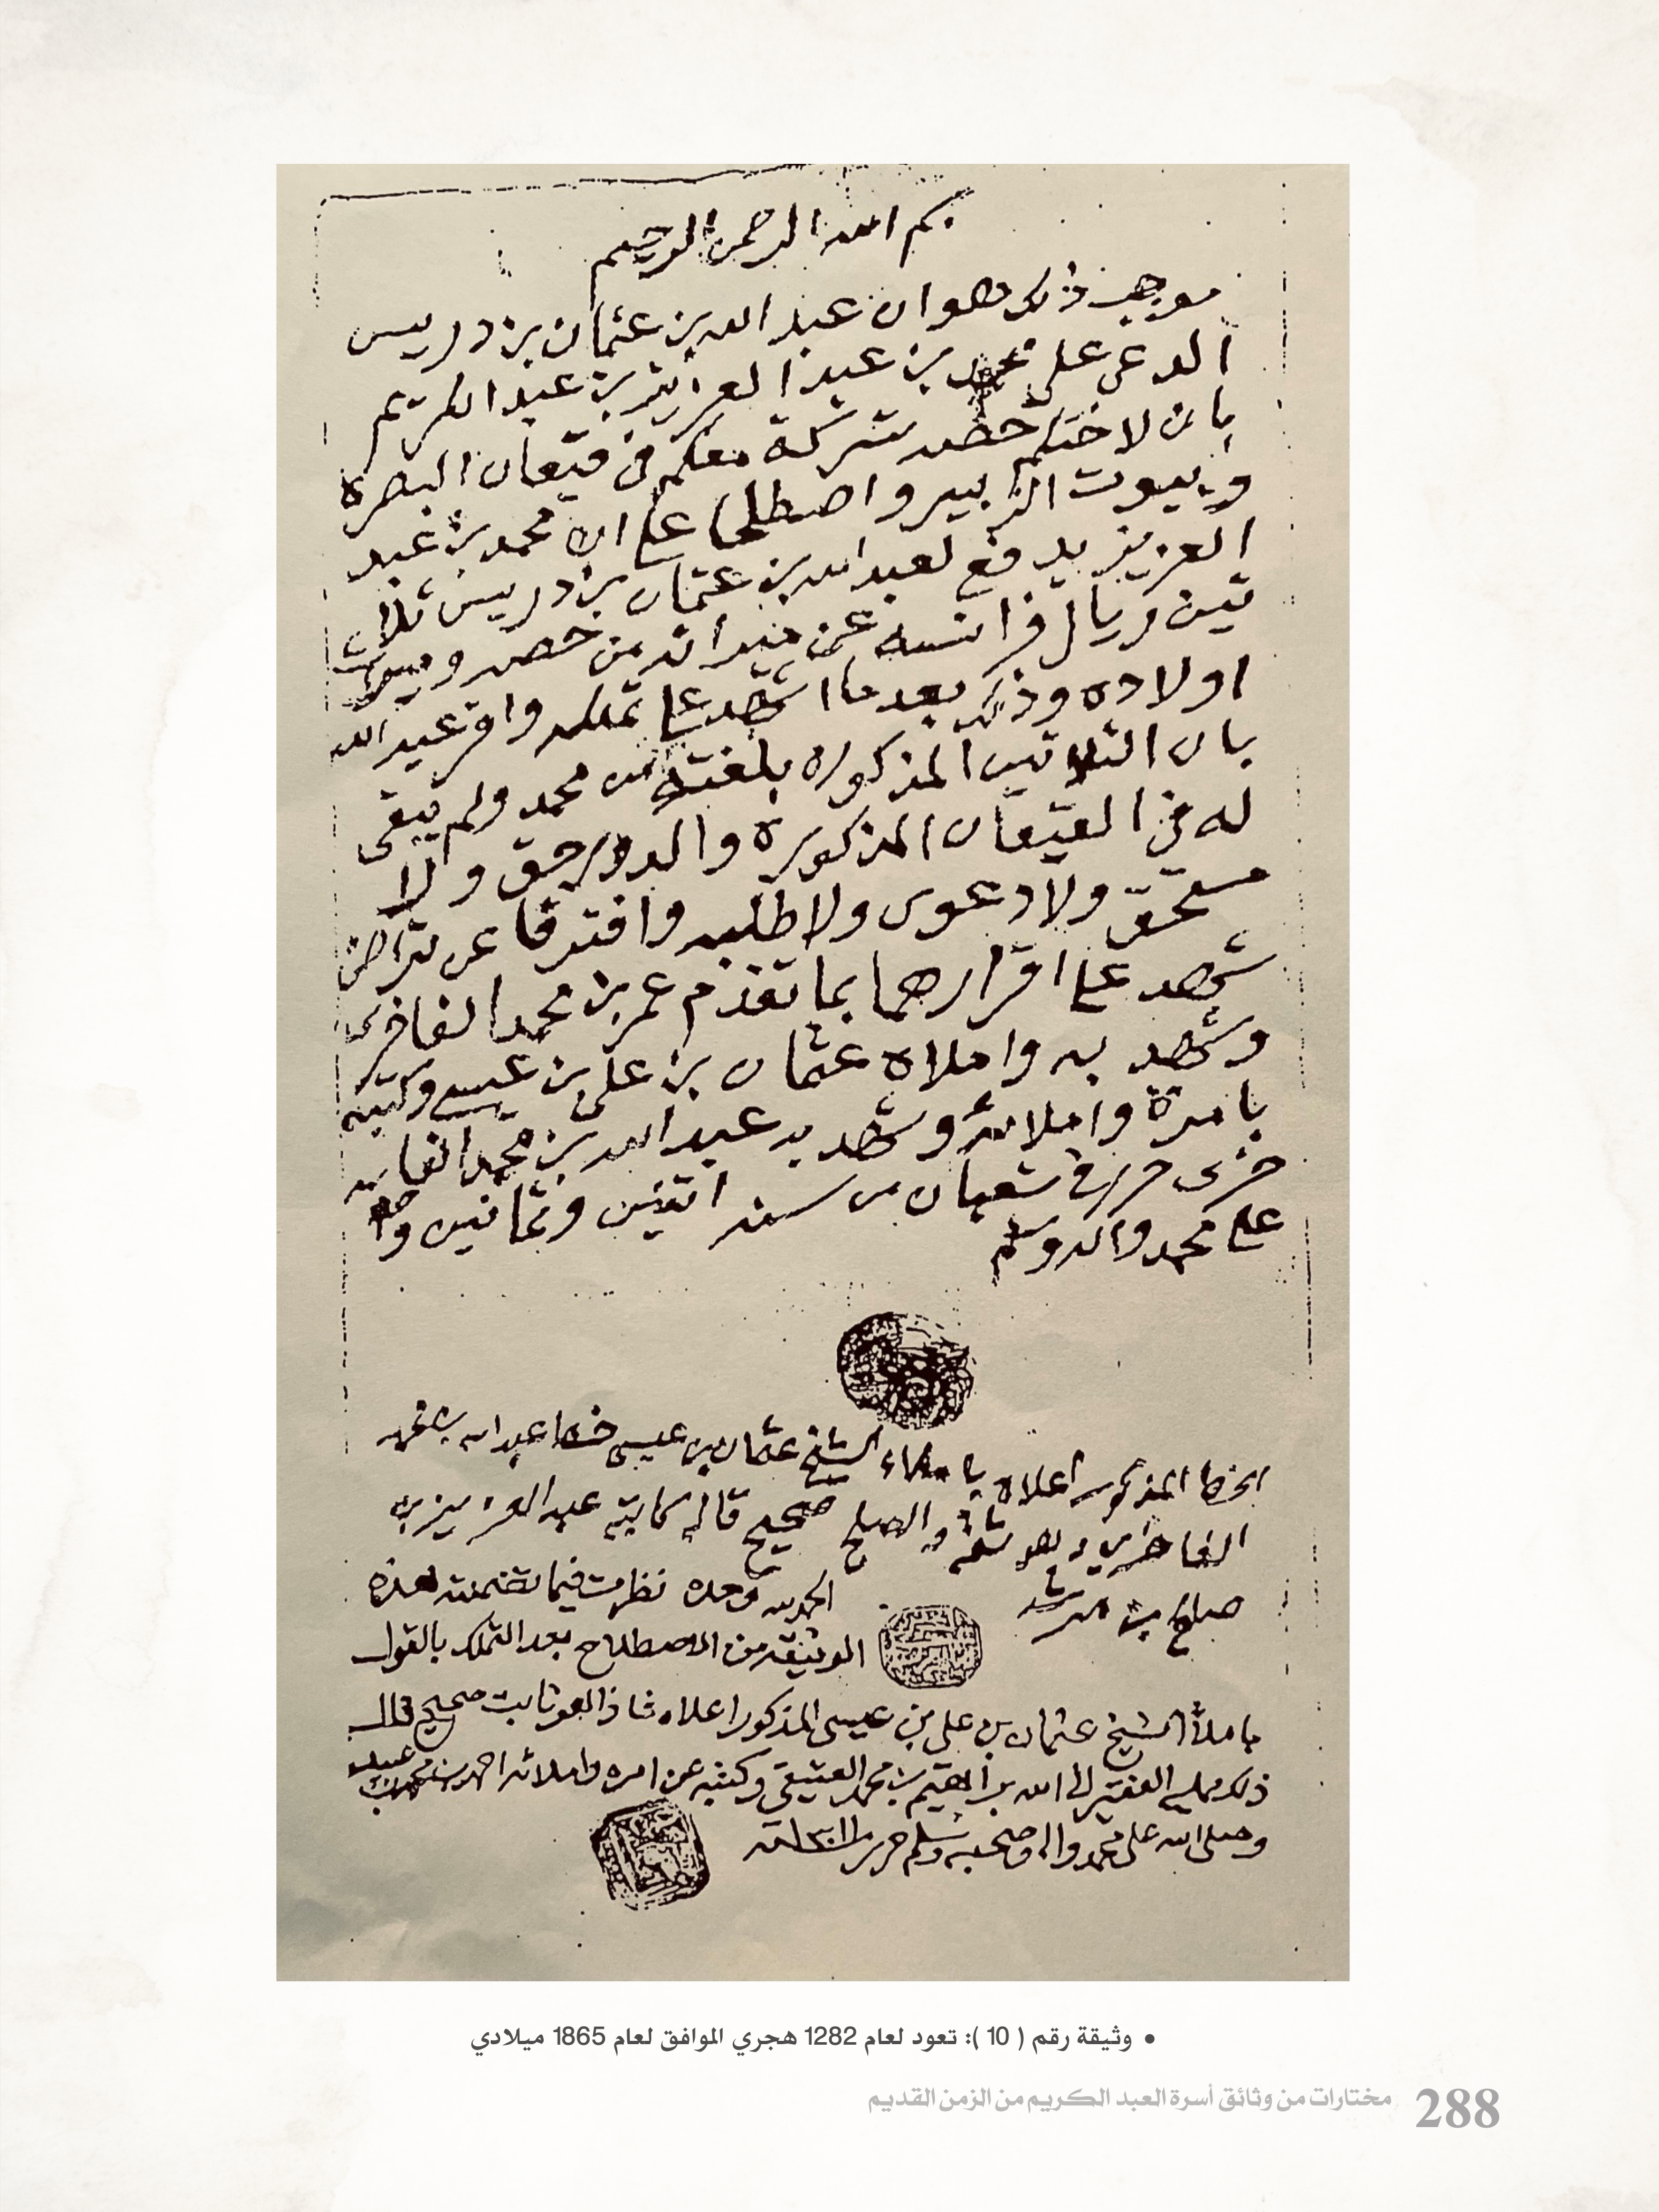 بسم الله الرحمن الرحيم
موجب ذلك هو ان عبد الله بن عثمان بن دريس
الدعى على محمد بن عبد العزيز بن عبد الكريم
بان لاختكم حصه شركة معكم في قيعان البصره
وبيوت الزبير واصطلحا على ان محمد بن عبد
العزيز يدفع لعبد الله بن عثمان بن دريس ثلا
ثين ريال فرانسه عن ميراثه من حصه وميراث
اولاده وذلك بعد ما اشهد على تملكه واقر عبد الله
بان الثلاثين المذكوره بلغته من محمد ولم يبقى
له في القيعان المذكورة والدور حق ولا
مستحق ولا دعوى ولا طلبه وافترقا عن تراض
شهد على اقرارهما بما تقدم عمر بن محمد الفاخري
وشهد به واملاه عثمان بن علي بن عيسى وكتبه
بامرة واملائه وشهد به عبد الله بن محمد الفا
خري حرر في شعبان من سنه اثنين وثمانين
على محمد واله وسلم
الخط المذكور اعلاه باملاء الشيخ عثمان بن عيسى خط عبد الله بن محمد
الفاخري وهو ثقة والصلح صحيح قاله كاتبه عبد العزيز بن
صالح بن مرشد
الحمد لله وحده نظرت فيما تضمنته هذه
الوثيقه من الاصطلاح بعد التملك بالقول
باملاء الشيخ عثمان بن علي بن عيسى المذكور اعلاه فاذا هو ثابت صحيح قال
ذلك ممليه الفقير الى الله براهيم بن محمد العتيقي وكتبه عن امره واملائه احمد بن محمد بن عبيد
وصلى الله على محمد واله وصحبه وسلم حرر
• وثيقة رقم ( 10 ): تعود لعام 1282 هجري الموافق لعام 1865 ميلادي
288 مختارات من وثائق أسرة العبد الكريم من الزمن القديم